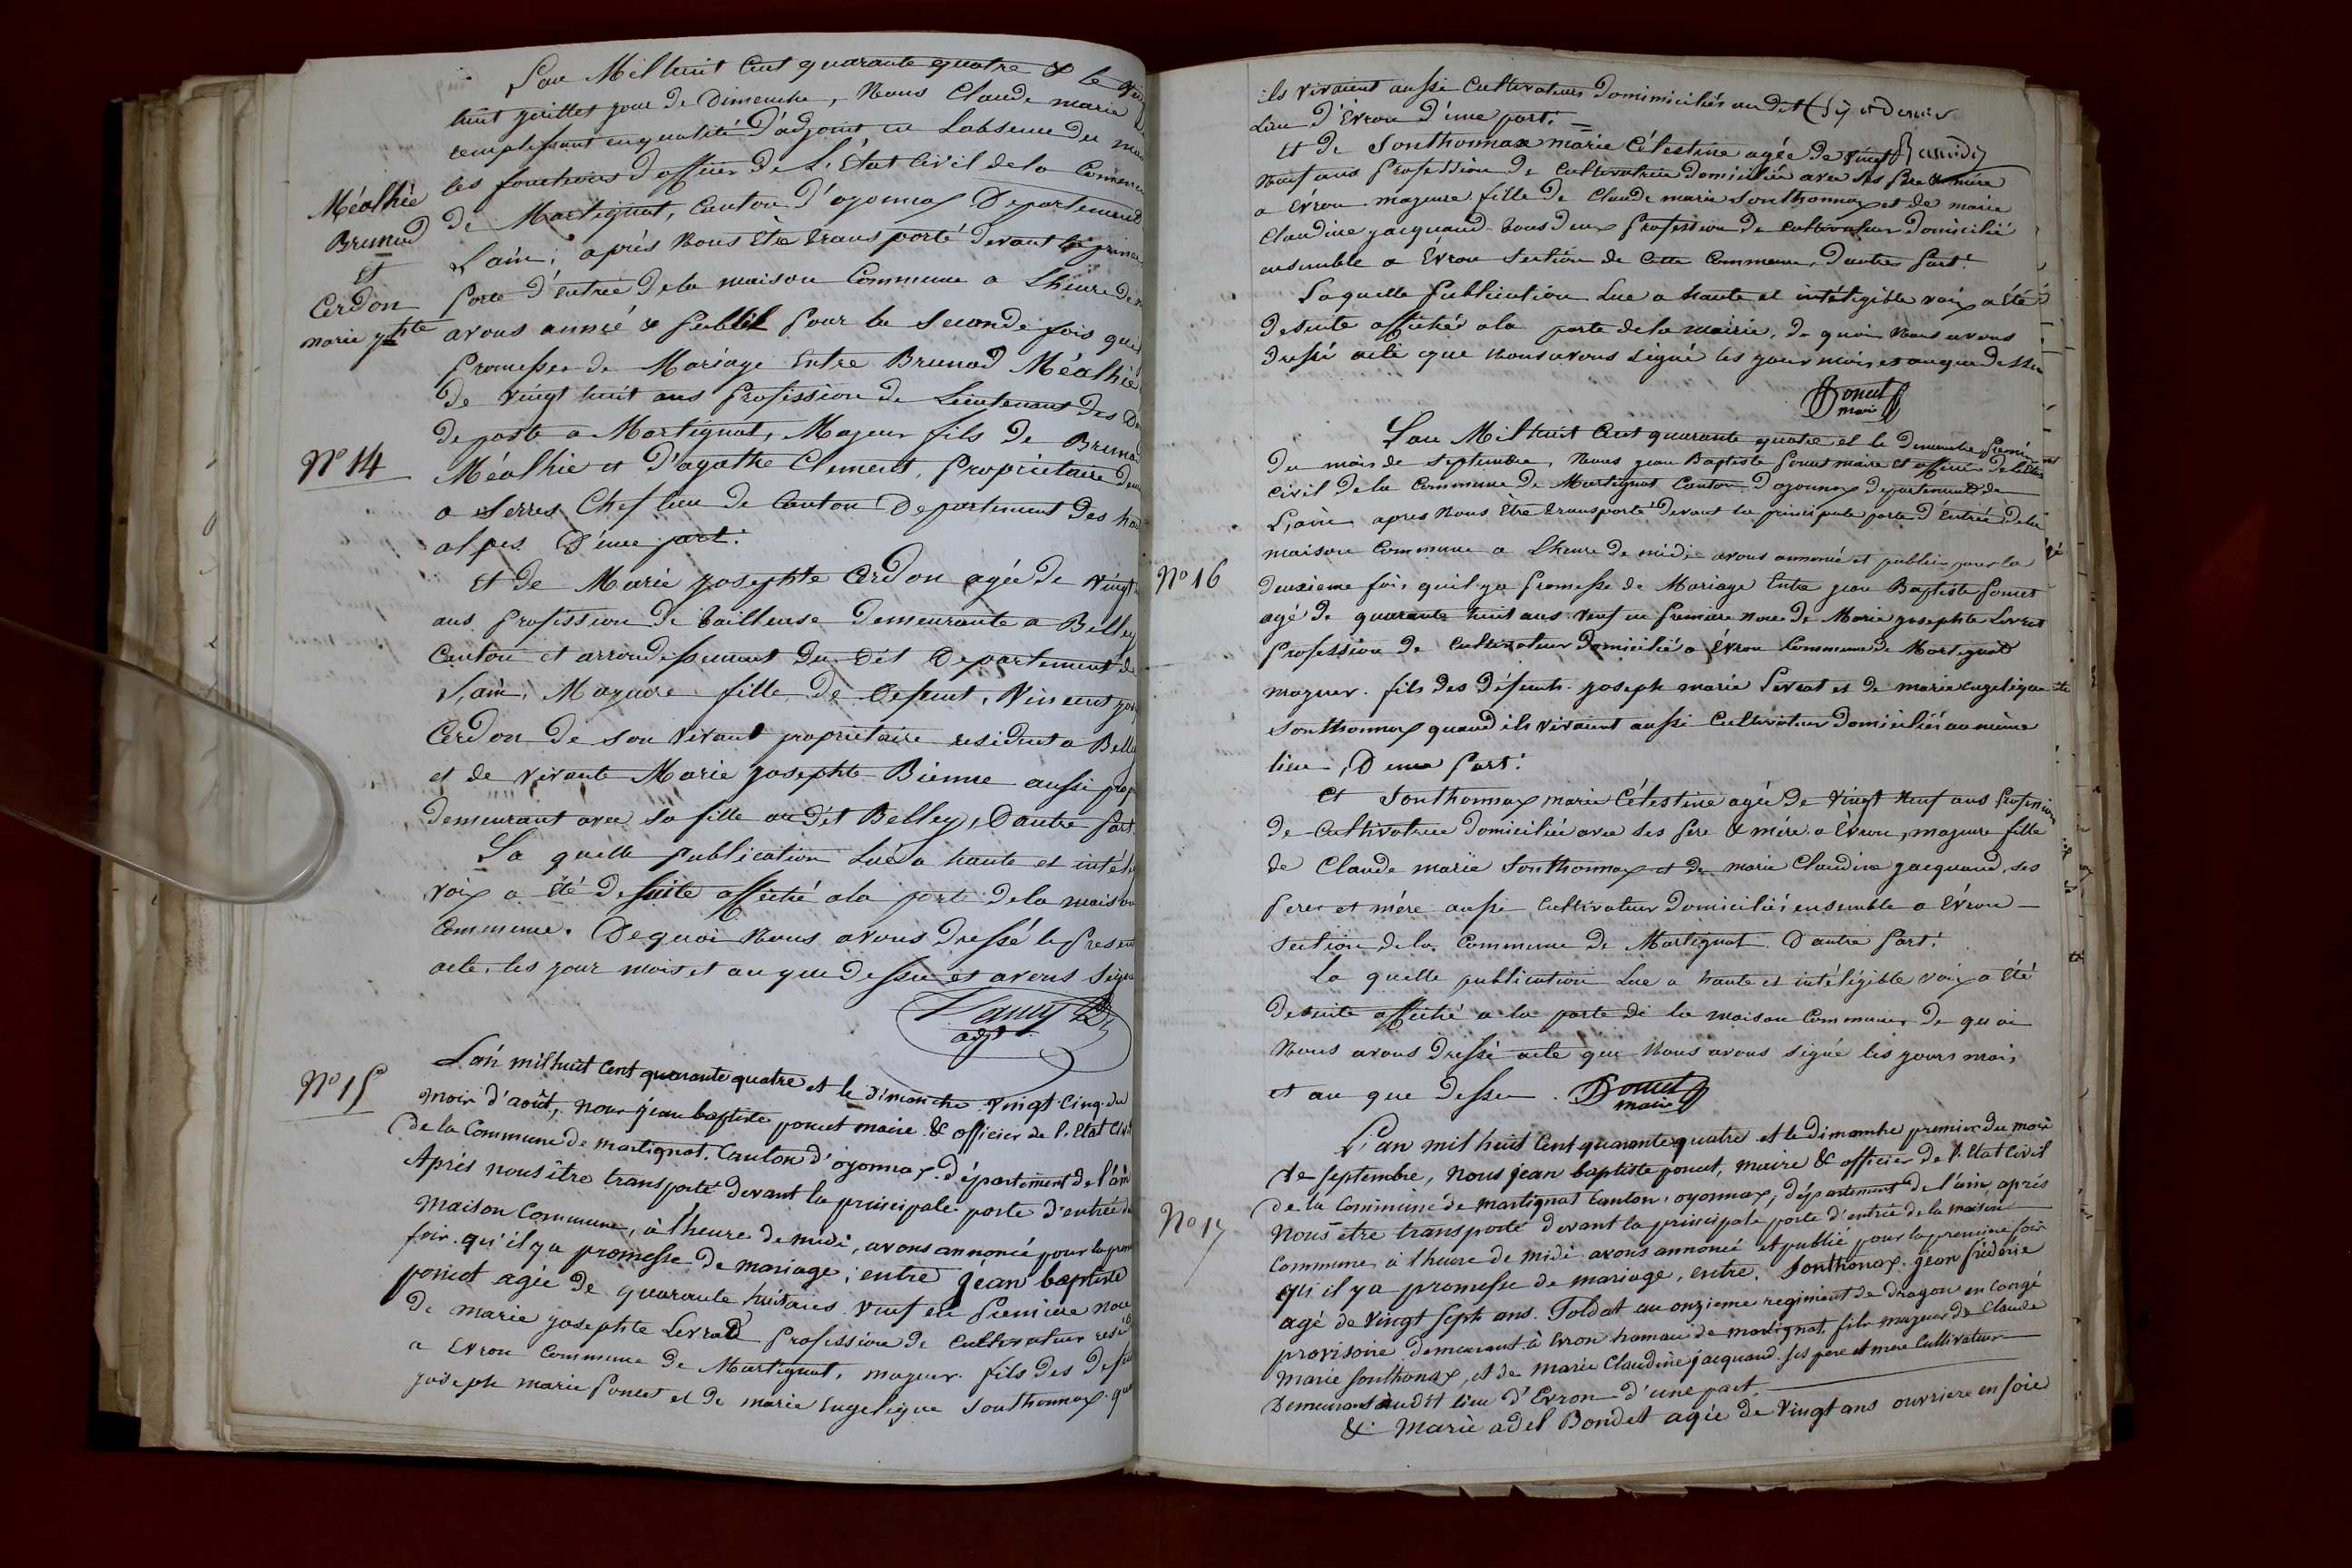 L'an Mil huit Cent quarante quatre & le
huit juillet jour de Dimenche, Nous Claude marie
remplissant en qualité D'adjoint en Labsence du
les fonctions d'officier De L'État Civil de la Commune
Méalhie
de Martignat, Canton d'oyonnax Departement
Brunad
L'ain; après Nous être transporté devant la
et
Porte d'entrée De la maison Commune a Lheure de
Cerdon
avons annoncé & publié pour la Seconde fois qu'il
marie jphte
Promesses de Mariage Entre Brunad Méalhie
De vingt huit ans profession de Lieutenant des
de poste a Martignat, Majeur fils de Brunad
N° 14
Méalhie et D'agathe Clement, propriétaire
a Serres Chef lieu de Canton Departement des
alpes D'une part.
Et de Marie josephte Cerdon agée de vingt
ans profession de tailleuse Demeurante a Belley
Canton et arrondissement du dit Departement de
L'ain, Majeure fille de Defunt, Vincent
Cerdon de son vivant propriétaire residant a Belley
et de vivante Marie josephte Bienne aussi
demeurant avec sa fille au dit Belley, D'autre part.
La quelle publication Lue a haute et
voix a été de suite affiché a la porte de la maison
Commune. De quoi Nous avons Dressé le present
acte, les jour mois et an que dessus et avons signé
adjt.
N° 15
L'an mil huit Cent quarante quatre et le Dimanche vingt-cinq du
mois d'août, nous jean baptiste poncet maire & officier de l'Etat Civil
de la Commune de martignat. Canton d'oyonnax. département de l'ain
Après nous être transporté devant la principale porte d'entrée
maison Commune, à l'heure de midi, avons annoncé pour la
fois qu'il y a promesse de mariage; entre jéan baptiste
poncet agée de quarante huit ans veuf en Première
de marie josephte Levrat Profession de Cultivateur
a Evron Commune de Martignat, majeur fils des
joseph marie Poncet et de marie angelique Sonthonnax
ils vivaient aussi Cultivateurs Domimiciliés au dit
Lieu d'Évron d'une part.
Et de Sonthonnax marie Célestine agée de vingt
Neuf ans Profession de Cultivatrice Domiciliée avec ses père & mère
a Évron majeure fille de Claude marie Sonthonnax et de marie
Claudine jacquand tous deux profession de Cultivateur Domicilié
ensemble a Évron Section de Cette Commune, D'autre part.
Laquelle publication Lue a haute et intéligible voix a été
de suite affiché a la porte de la mairie, de quoi Nous avons
dressé acte que Nous avons signé les jour mois et an que dessus
Poncet
maire
L'an Mil huit Cent quarante quatre et le dimanche
Du mois de Septembre, Nous jean Baptiste Poncet maire et officier de l'état
Civil de la Commune de Martignat Canton d'oyonnax departement de
L'ain apres Nous être transporté devant la principale porte d'entrée de la
maison Commune a Lheure de midi avons annoncé et publié pour la
N° 16
deuxieme fois qu'il y a promesse de Mariage Entre jean Baptiste Poncet
agé de quarante huit ans veuf en Premiere Noce de Marie josephte Levrat
Profession de Cultivateur Domicilié a Évron Commune de Martignat
majeur. fils des défunts joseph marie Levrat et de marie angelique
Sonthonnax quand ils vivaient aussi Cultivateur Domiciliés au même
lieu, D'une Part.
Et Sonthonnax marie Célestine agée de vingt Neuf ans Profession
de Cultivatrice domiciliée avec ses père & mère a Évron, majeure fille
de Claude marie Sonthonnax et de marie Claudine jacquand, ses
peres et mère aussi Cultivateur Domiciliés ensemble a Évron
Section de la Commune de Martignat D'autre part.
La quelle publication Lue a haute et intéligible voix a été
de suite affiché a la porte de la maison Commune, De quoi
Nous avons dressé acte que Nous avons signé les jours mois,
et an que dessus. Poncet
maire
L'an mil huit Cent quarante quatre et le dimanche premier du mois
de septembre, Nous jean baptiste poncet, maire & officier de l'Etat Civil
de la Commune de martignat Canton, oyonnax, département de l'ain après
N° 17
Nous être transporté devant la principale porte d'entrée de la maison
Commune, à l'heure de midi avons annoncé et publié pour la premiere fois
qu'il y a promesse de mariage, entre. Sonthonax. jéan fréderic
agé de vingt sept ans. Soldat au onzieme regiment de dragon en Congé
provisoire demeurant à Evron hameau de martignat, fils majeur de Claude
Marie Sonthonax, et de Marie Claudine jacquand. ses pere et mere Cultivateur
Demeurans audit lieu d'Evron d'une part.
& Marie adel Bondet agée de vingt ans ouvriere en soie